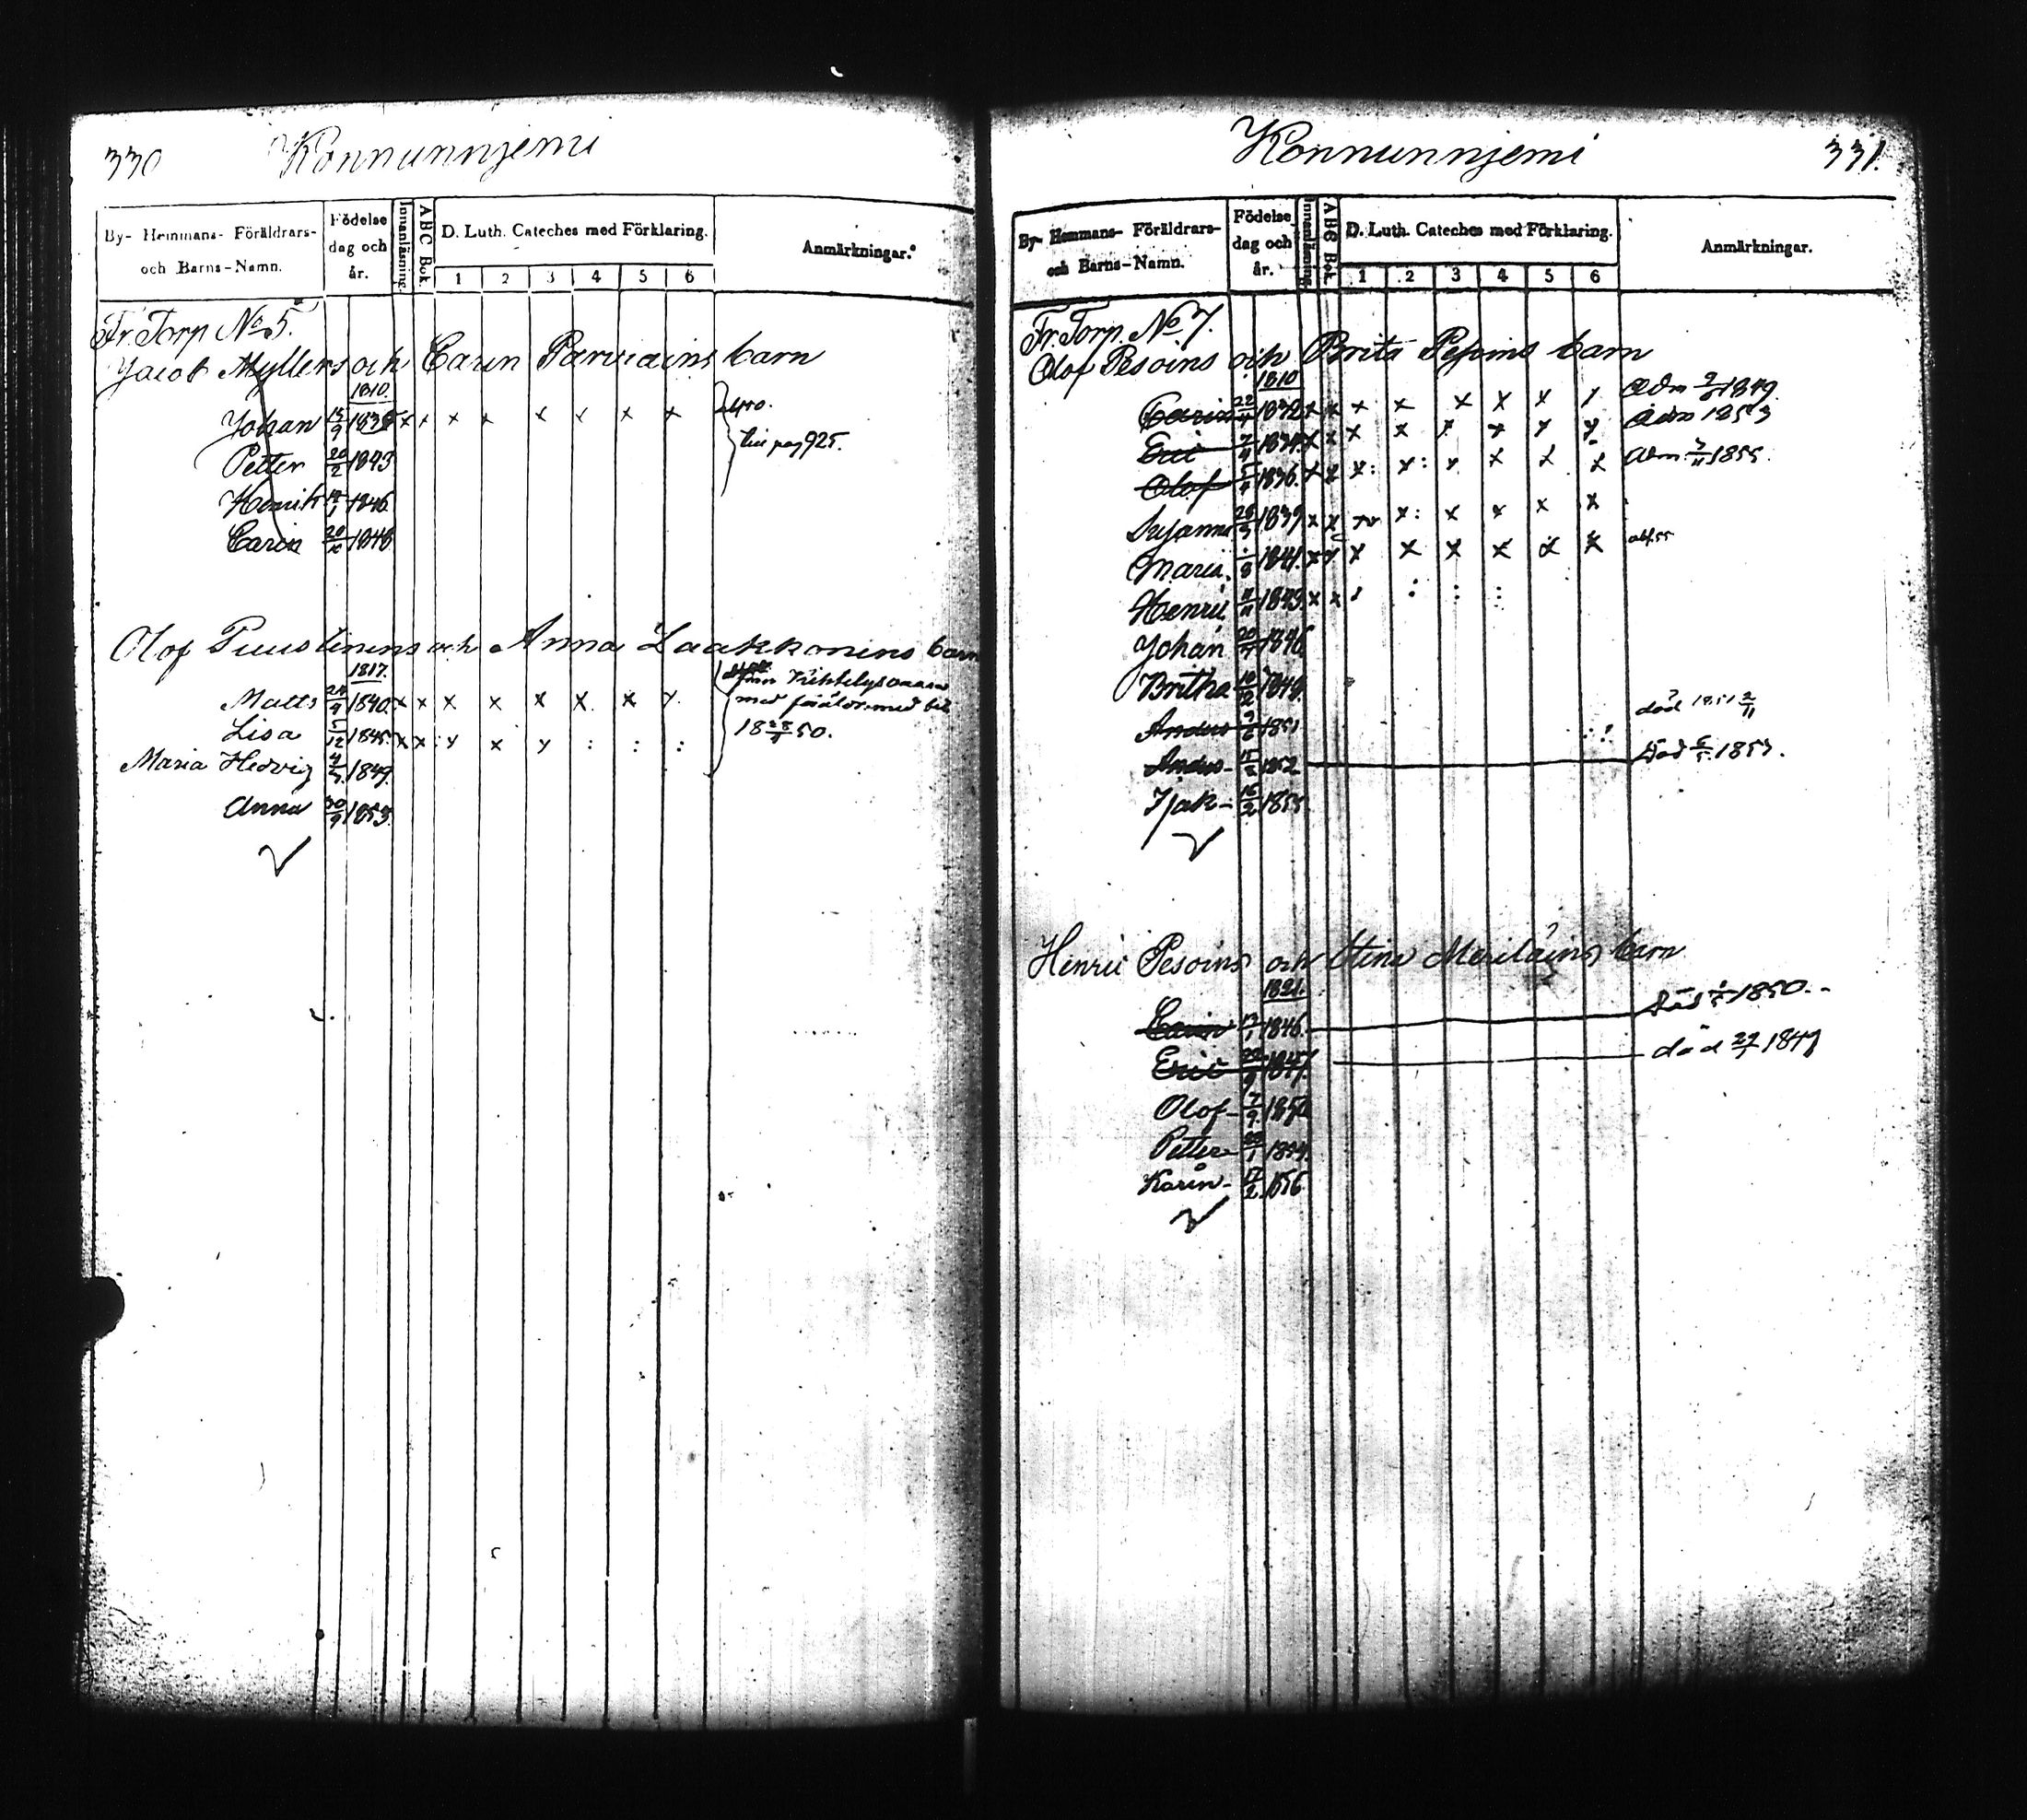 330 Konnunnjemi
By- Hemmans- Föräldrars- och Barns-Namn. Födelse dag och år. Innanläsning. ABC Bok. D. Luth. Cateches med Förklaring. 1 2 3 4 5 6 Anmärkningar.
Fr. Torp No 5.
Jacob Myllers och Carin Parviains barn
1810.
Johan 1836 x x x x x x x x
till pag 925.
Petter 20/2 1843
Henrik 1846
Carin 1848
Olof Puustinens och Anna Laakkonens barn
1817.
Matts 24/4 1840. x x x x x x x x från Kihtelysvaara
med föräldr. med bet.
Lisa 5/12 1845. x x x x x : : : 1850.
Maria Hedvig 1849.
Anna 30/9 1853.
331.
Konnunnjemi
By- Hemmans- Föräldrars- och Barns-Namn. Födelse dag och år. Innanläsning. ABC Bok. D. Luth. Cateches med Förklaring. 1 2 3 4 5 6 Anmärkningar.
Fr. Torp. No 7.
Olof Pesoins och Brita barn
1810
Carin 22/4 1832 x x x x x x x x Adm 1849
Eric 1834 x x x x x x x x Adm 1853
Olof 1836. x x x: x: x x x x Adm 1855.
Susanna 1839 x x x x: x x x x
Maria 1841. x x x x x x x x
Henric 1843 x x : : :
Johan 20/7 1846
Britha 10/2 1849.
Anders 9/6 1851 död 1851 2/11
Anders 1852 Död 1853.
Isak 16/2 1855
Henric Pesoins och Stina Meriläins barn
1821.
Carin 1846. död 1850.
Eric 1847. död 1849
Olof 7/9 1850
Petter 1854.
Karin 17/2 1856